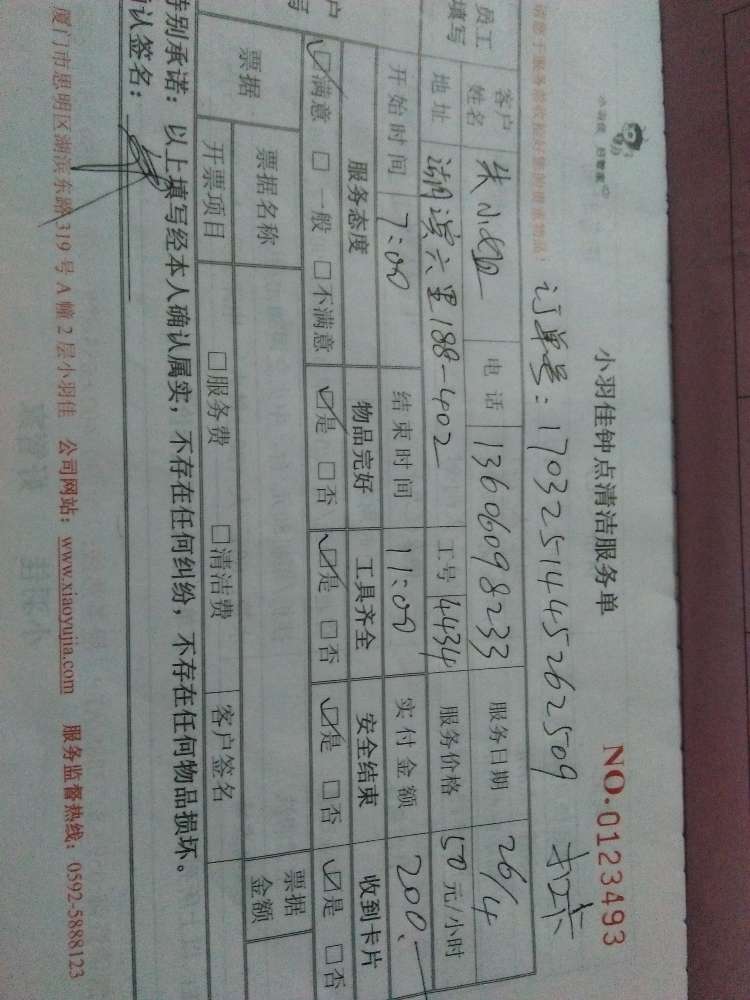 小羽佳 好管家
小羽佳钟点清洁服务单
NO.0123493
订单号：170325144526 2509
员工填写 客户姓名 朱小姐 电话 13606098233 服务日期 26/4
地址 湖滨六里188-402 工号 4434 服务价格 50元/小时
开始时间 7:00 结束时间 11:00 实付金额 200.-
户 服务态度 物品完好 工具齐全 安全结束 收到卡片
写 ☑满意 □一般 □不满意 ☑是 □否 ☑是 □否 ☑是 □否 ☑是 □否
票据 票据名称 票据金额
开票项目 □服务费 □清洁费 客户签名
特别承诺：以上填写经本人确认属实，不存在任何纠纷，不存在任何物品损坏。
认签名：
厦门市思明区湖滨东路319号A幢2层小羽佳 公司网站：www.xiaoyujia.com 服务监督热线：0592-5888123